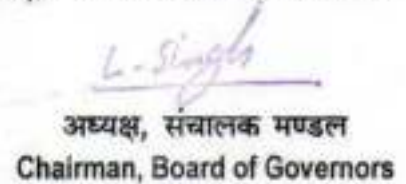 L. Singh
अध्यक्ष, संचालक मण्डल
Chairman, Board of Governors